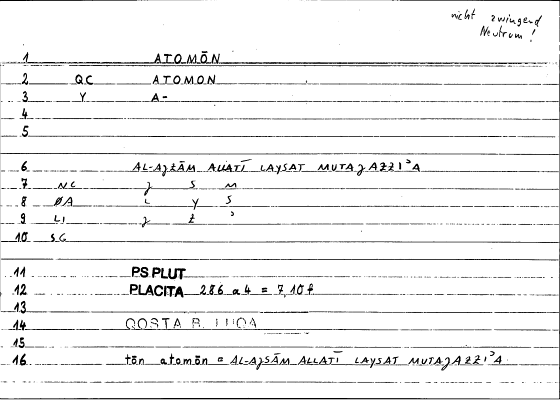 nicht zwingend
Neutrum!
1 ATOMŌN
2 QC ATOMON
3 Y A-
4
5
6 AL-AǧZĀM ALLATĪ LAYSAT MUTAǧAZZIʾA
7 NC ǧ S M
8 ØA L Y S
9 LI ǧ Z ʾ
10 SG
11 PS PLUT
12 PLACITA 286 a 4 = 7,10f
13
14 QOSTA B. LUQA
15
16 tōn atomōn = AL-AǧSĀM ALLATĪ LAYSAT MUTAǧAZZIʾA